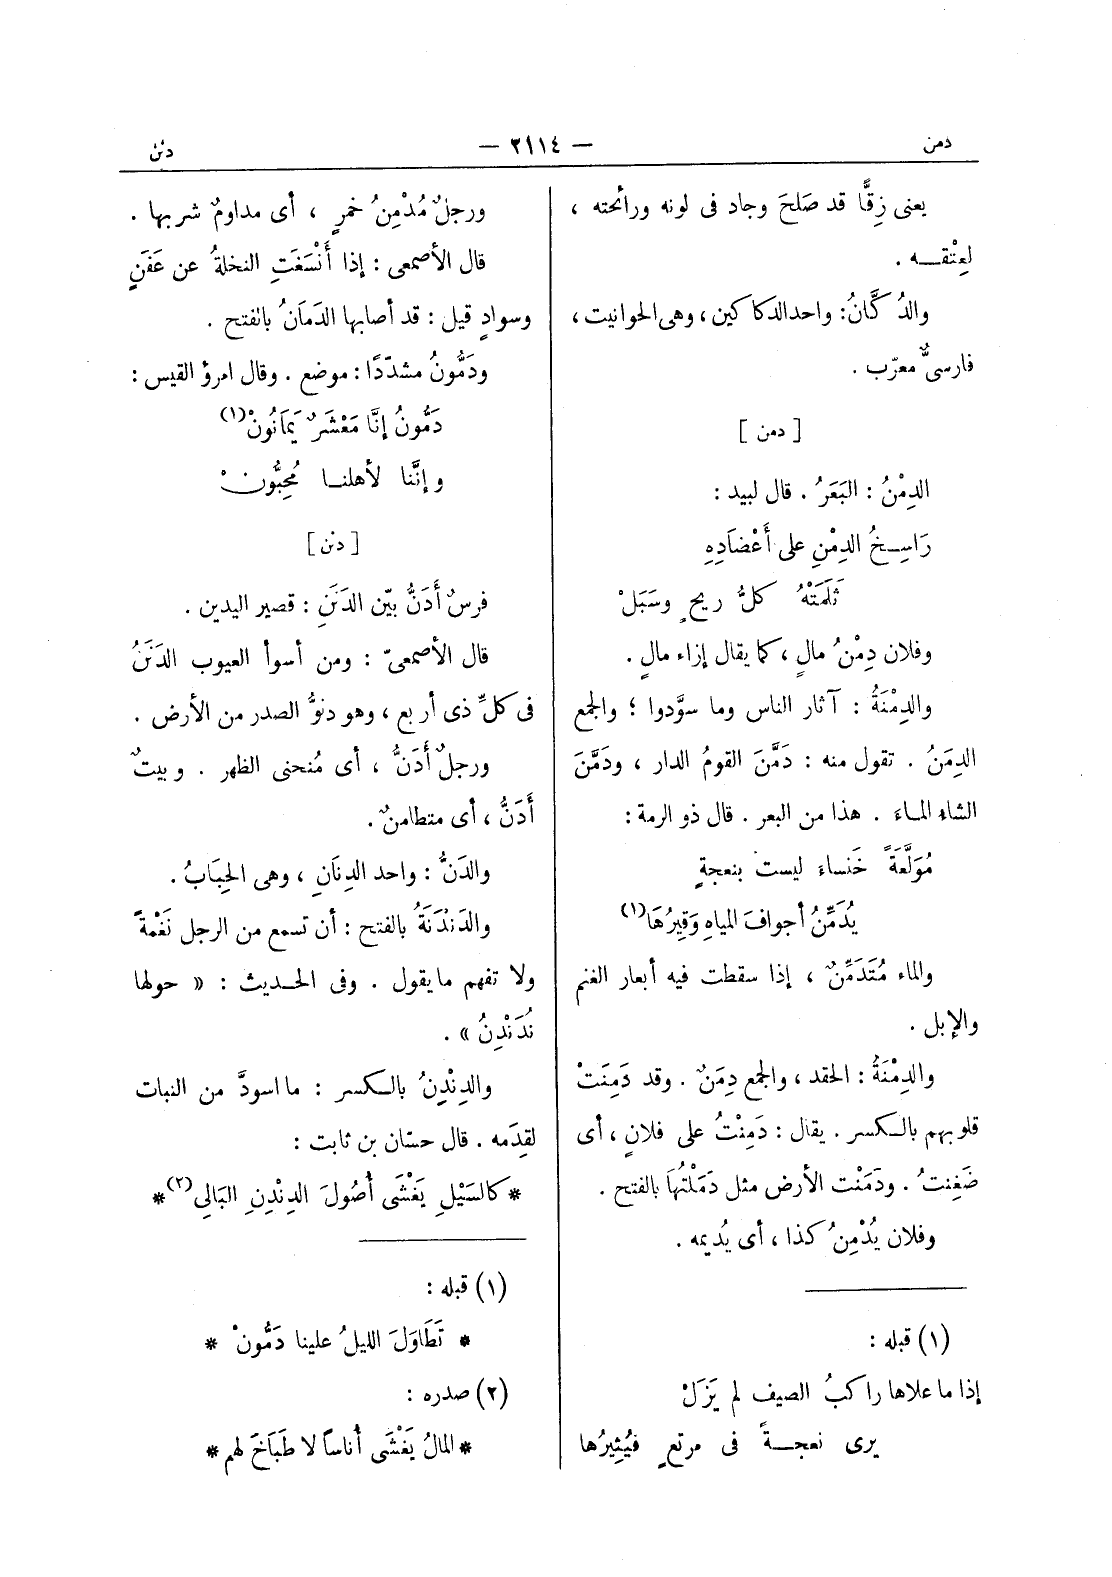 دمن
— ٢١١٤ —
دنن
يعنى زِقًّا قد صَلحَ وجاد فى لونه ورائحته ،
لعِتْقـه .
والدُكَّانُ: واحد الدكاكين، وهى الحوانيت،
فارسىٌّ معرّب .
[ دمن ]
الدِمْنُ : البَعَرُ . قال لبيد :
رَاسِـخُ الدِمْنِ على أَعْضَادِهِ
ثَلَمَتْهُ كلُّ ريحٍ وسَبَلْ
وفلان دِمْنُ مالٍ ، كما يقال إزاء مالٍ .
والدِمْنَةُ : آثار الناس وما سوَّدوا ؛ والجمع
الدِمَنُ . تقول منه : دَمَّنَ القومُ الدار ، ودَمَّنَ
الشاء الماء . هذا من البعر . قال ذو الرمة :
مُوَلَّعَةً خَنساء ليست بنعجةٍ
يُدَمِّنُ أجوافَ المياهِ وَقِيرُهَا(١)
والماء مُتَدَمِّنٌ ، إذا سقطت فيه أبعار الغنم
والإبل .
والدِمْنَةُ : الحقد ، والجمع دِمَنٌ . وقد دَمِنَتْ
قلوبهم بالكسر . يقال : دَمِنْتُ على فلانٍ ، أى
ضَغِنتُ . ودَمَنْت الأرض مثل دَمَلْتُهَا بالفتح .
وفلان يُدْمِنُ كذا ، أى يُديمه .
(١) قبله :
إذا ما علاها راكبُ الصيف لم يَزَلْ
يرى نعجـةً فى مرتعٍ فيُثِيرُها
ورجلٌ مُدْمِنُ خمرٍ ، أى مداومٌ شربها .
قال الأصمعى : إذا أَنْسَغَتِ النخلةُ عن عَفَنٍ
وسوادٍ قيل : قد أصابها الدَمَانُ بالفتح .
ودَمُّونُ مشدّدًا : موضع . وقال امرؤ القيس :
دَمُّونُ إنَّا مَعْشَرٌ يَمَانُونْ(١)
وإنَّنا لأهلنـا مُحِبُّونْ
[ دنن ]
فرسٌ أَدَنُّ بيّن الدَنَنِ : قصير اليدين .
قال الأصمعىّ : ومن أسوأ العيوب الدَنَنُ
فى كلِّ ذى أربع ، وهو دنوُّ الصدر من الأرض .
ورجلٌ أَدَنُّ ، أى مُنحنى الظهر . وبيتٌ
أَدَنُّ ، أى متطامنٌ .
والدَنُّ : واحد الدِنَانِ ، وهى الحِبَابُ .
والدَنْدَنَةُ بالفتح : أن تسمع من الرجل نَغْمةً
ولا تفهم ما يقول . وفى الحـديث : « حولها
نُدَنْدِنُ » .
والدِنْدِنُ بالكسر : ما اسودَّ من النبات
لقِدَمه . قال حسّان بن ثابت :
* كالسَيْلِ يَغْشَى أُصُولَ الدِنْدِنِ البَالِى(٢) *
(١) قبله :
* تَطَاوَلَ الليلُ علينا دَمُّونْ *
(٢) صدره :
* المالُ يَغْشَى أُناساً لا طَبَاخَ لهم *